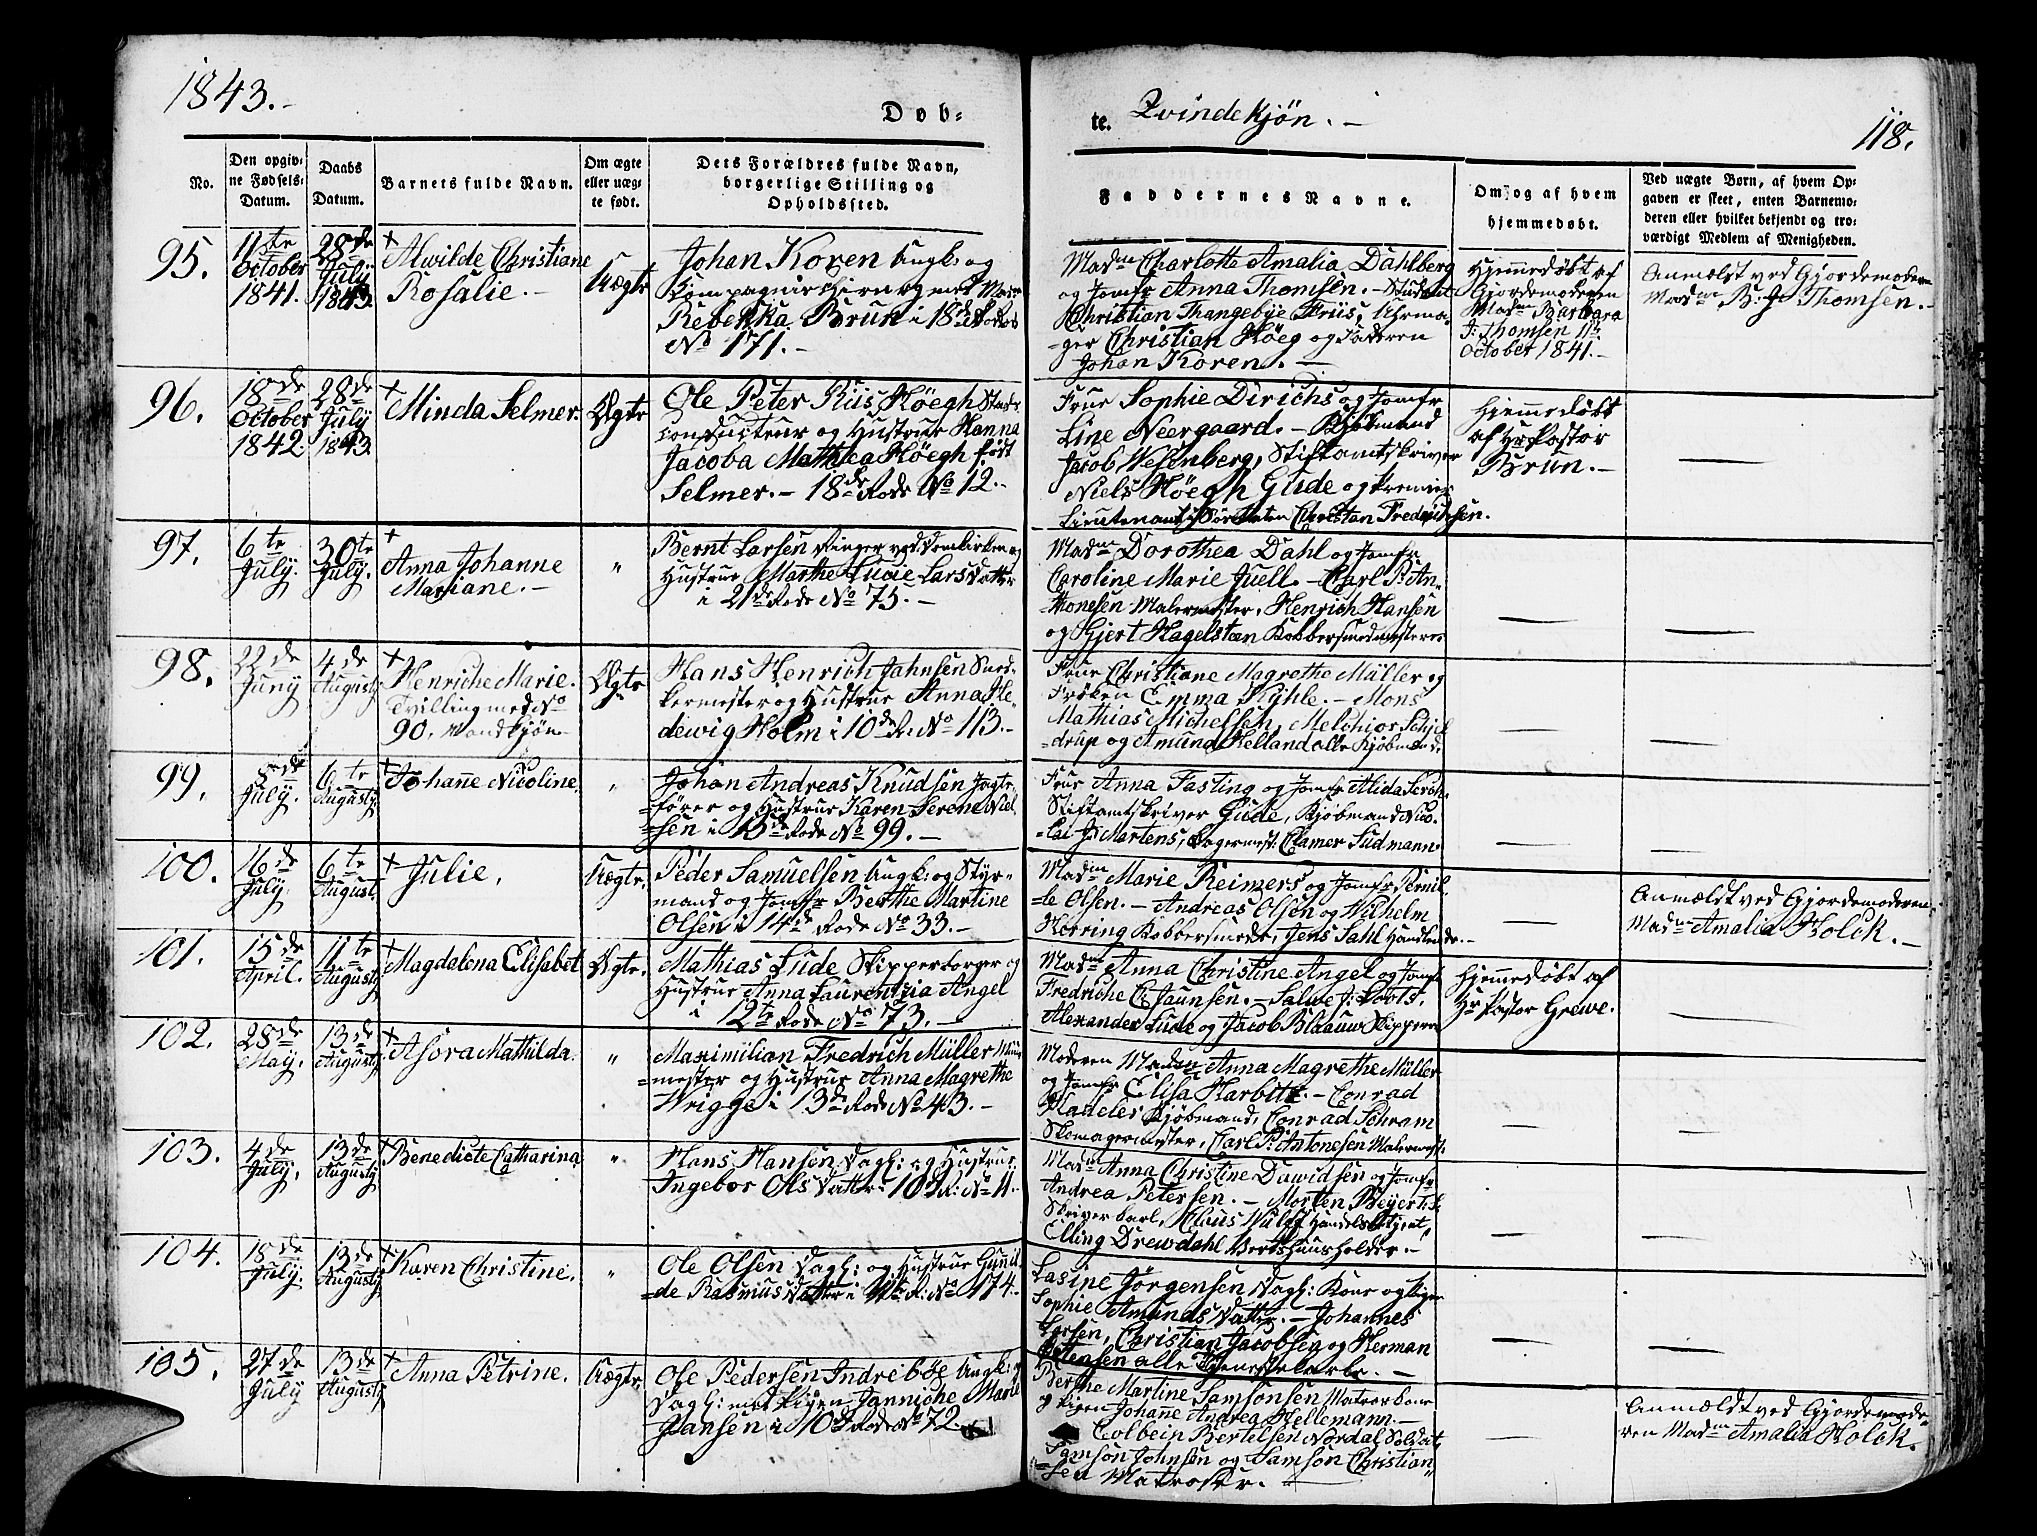 1843.-
Døb-
te. Qvindekjøn. -
118.
No.
Den opgiv-
ne Fødsels-
Datum.
Daabs
Datum.
Barnets fulde Navn.
Om ægte
eller uæg-
te født.
Dets Forældres fulde Navn,
borgerlige Stilling og
Opholdssted.
Faddernes Navne.
Om og af hvem
hjemmedøbt.
Ved uægte Børn, af hvem Op-
gaven er skeet, enten Barnemo-
deren eller hvilket bekjendt og tro-
værdigt Medlem af Menigheden.
95.
11te
October
1841.
28de
July
1843.
+
Alvilde Christiane
Rosalie. -
Uægte
Johan Koren Ungk: og
Rebekka Brun i 18de Rode
No 171. -
Madm Charlotte Amalia Dahlberg
og Jomfr Anna Thomsen. - Student
Christian Thangebye Friis, Uhrma-
ger Christian Høeg og Faderen
Johan Koren. -
Hjemmedøbt af
Gjordemoderen
Madm Barbara
J: Thomsen 11te
October 1841. -
Anmeldt ved Gjordemoderen
Madm B: J: Thomsen. -
96.
18de
October
1842.
28de
July
1843.
+
Minda Selmer.
Ægte
Ole Peter Riis Høegh Stads-
conducteur og Hustrue Hanna
Jacoba Mathea Høegh født
Selmer. - 18de Rode No 12. -
Frue Sophie Dirichs og Jomfr
Line Neergaard. - Kjøbmand
Jacob Wesenberg, Stiftamtskriver
Niels Høegh Gude og Premier
Lieutenant i Søe Etaten Christan Fredrichsen.
Hjemmedøbt
af Hr Pastor
Brun. -
97.
6te
July.
30te
July.
+
Anna Johanne
Mariane. -
"
Bernt Larsen Ringer ved Domkirken og
Hustrue Marthe Lucie Larsdatter
i 21de Rode No 75. -
Madm Dorothea Dahl og Jomfr
Caroline Marie Juell. - Carl P: An-
thonesen Malermester, Henrich Hansen
og Gjert Hagelsteen Kobbersmedmestere
98.
22de
Juny
4de
Augusty
+
Henriche Marie.
Tvilling med No
90. Mandkjøn
Ægte
Hans Henrich Jahnsen Sned-
kermester og Hustrue Anna He-
dewig Holm i 10de R. No 113. -
Frue Christiane Magrethe Müller og
Frøken Emma Kyhle. - Mons
Mathias Michelsen, Melchior Schjel-
-drup og Amund Helland alle Kjøbmænd
99.
8de
July.
6te
Augusty
+
Johanne Nicoline.
"
Johan Andreas Knudsen Jagte
-fører og Hustrue Karen Serene Niel-
-sen i 15de Rode No 99. -
Frue Anna Fasting og Jomfr Alida Seroh.
Stiftamtskriver Gude, Kjøbmand Nico-
-lai J: Martens, Bagermest. Clamer Sudmann.
100.
16de
July.
6te
August.
+
Julie.
Uægte.
Peder Samuelsen Ungk: og Styr-
mand og Jomfr Berthe Martine
Olsen i 14de Rode No 33. -
Madm Marie Reimers og Jomfr Pernil-
-le Olsen. - Andreas Olsen og Wilhelm
Herring Kobbersmede, Jens Dahl Handlende. -
Anmeldt ved Gjordemoderen
Madm Amalia Holck. -
101.
15de
April.
11te
Augusty
+
Magdalena Elisabet
Ægte.
Mathias Lude Skipperborger og
Hustrue Anna Laurentzia Angel
i 12te Rode No 73. -
Madm Anna Christine Angel og Jomfr
Fredriche C: Jaunsen. - Salve J: Pools,
Alexander Lude og Jacob Blaauw Skippere
Hjemmedøbt af
Hr Pastor Grewe.
102.
28de
May.
13de
Augusty
+
Asora Mathilda.
"
Maximilian Fredrich Müller Muur-
-mester og Hustrue Anna Magrethe
Wrigge i 13de Rode No 43. -
Moderen Madm Anna Magrethe Müller
og Jomfr Elisa Harbitz. - Conrad
Hadeler Kjøbmand, Conrad Schram
Skomagermester, Carl P: Antonesen Malermest.
103.
4de
July.
13de
Augusty
+
Benedicte Catharina
"
Hans Hansen Dagl: og Hustrue
Ingebor Olsdatter i 10de R: No 11.
Madm Anna Christine Dawidsen og Jomfr
Andrea Petersen. - Morten Beyer
Skriverkarl, Claus Wulff Handelsbetjent,
Elling Drewdahl Vertshuusholder. -
104.
18de
July.
13de
Augusty
+
Karen Christine.
"
Ole Olsen Dagl: og Hustrue Gunil-
-de Rasmusdatter i 11te R. No 174.
Lasine Jørgensen Dagl: Kone og Pigen
Sophie Amundsdatter. - Johannes
Larsen, Christian Jacobsen og Herman
Petersen alle Tjenestekarle. -
105.
27de
July
13de
Augusty
+
Anna Petrine.
Uægte.
Ole Pedersen Indrebøe Ungk: og
Dagl: med Pigen Janniche Marie
Hansen i 10de Rode No 72.
Berthe Martine Samsonsen Matros kone
og Pigen Johanne Andrea Hellemann. -
Colbein Bertelsen Nordal Soldat,
Samson Johnsen og Samson Christian-
-sen Matroser. -
Anmeldt ved Gjordemode-
ren Madm Amalia Holck.